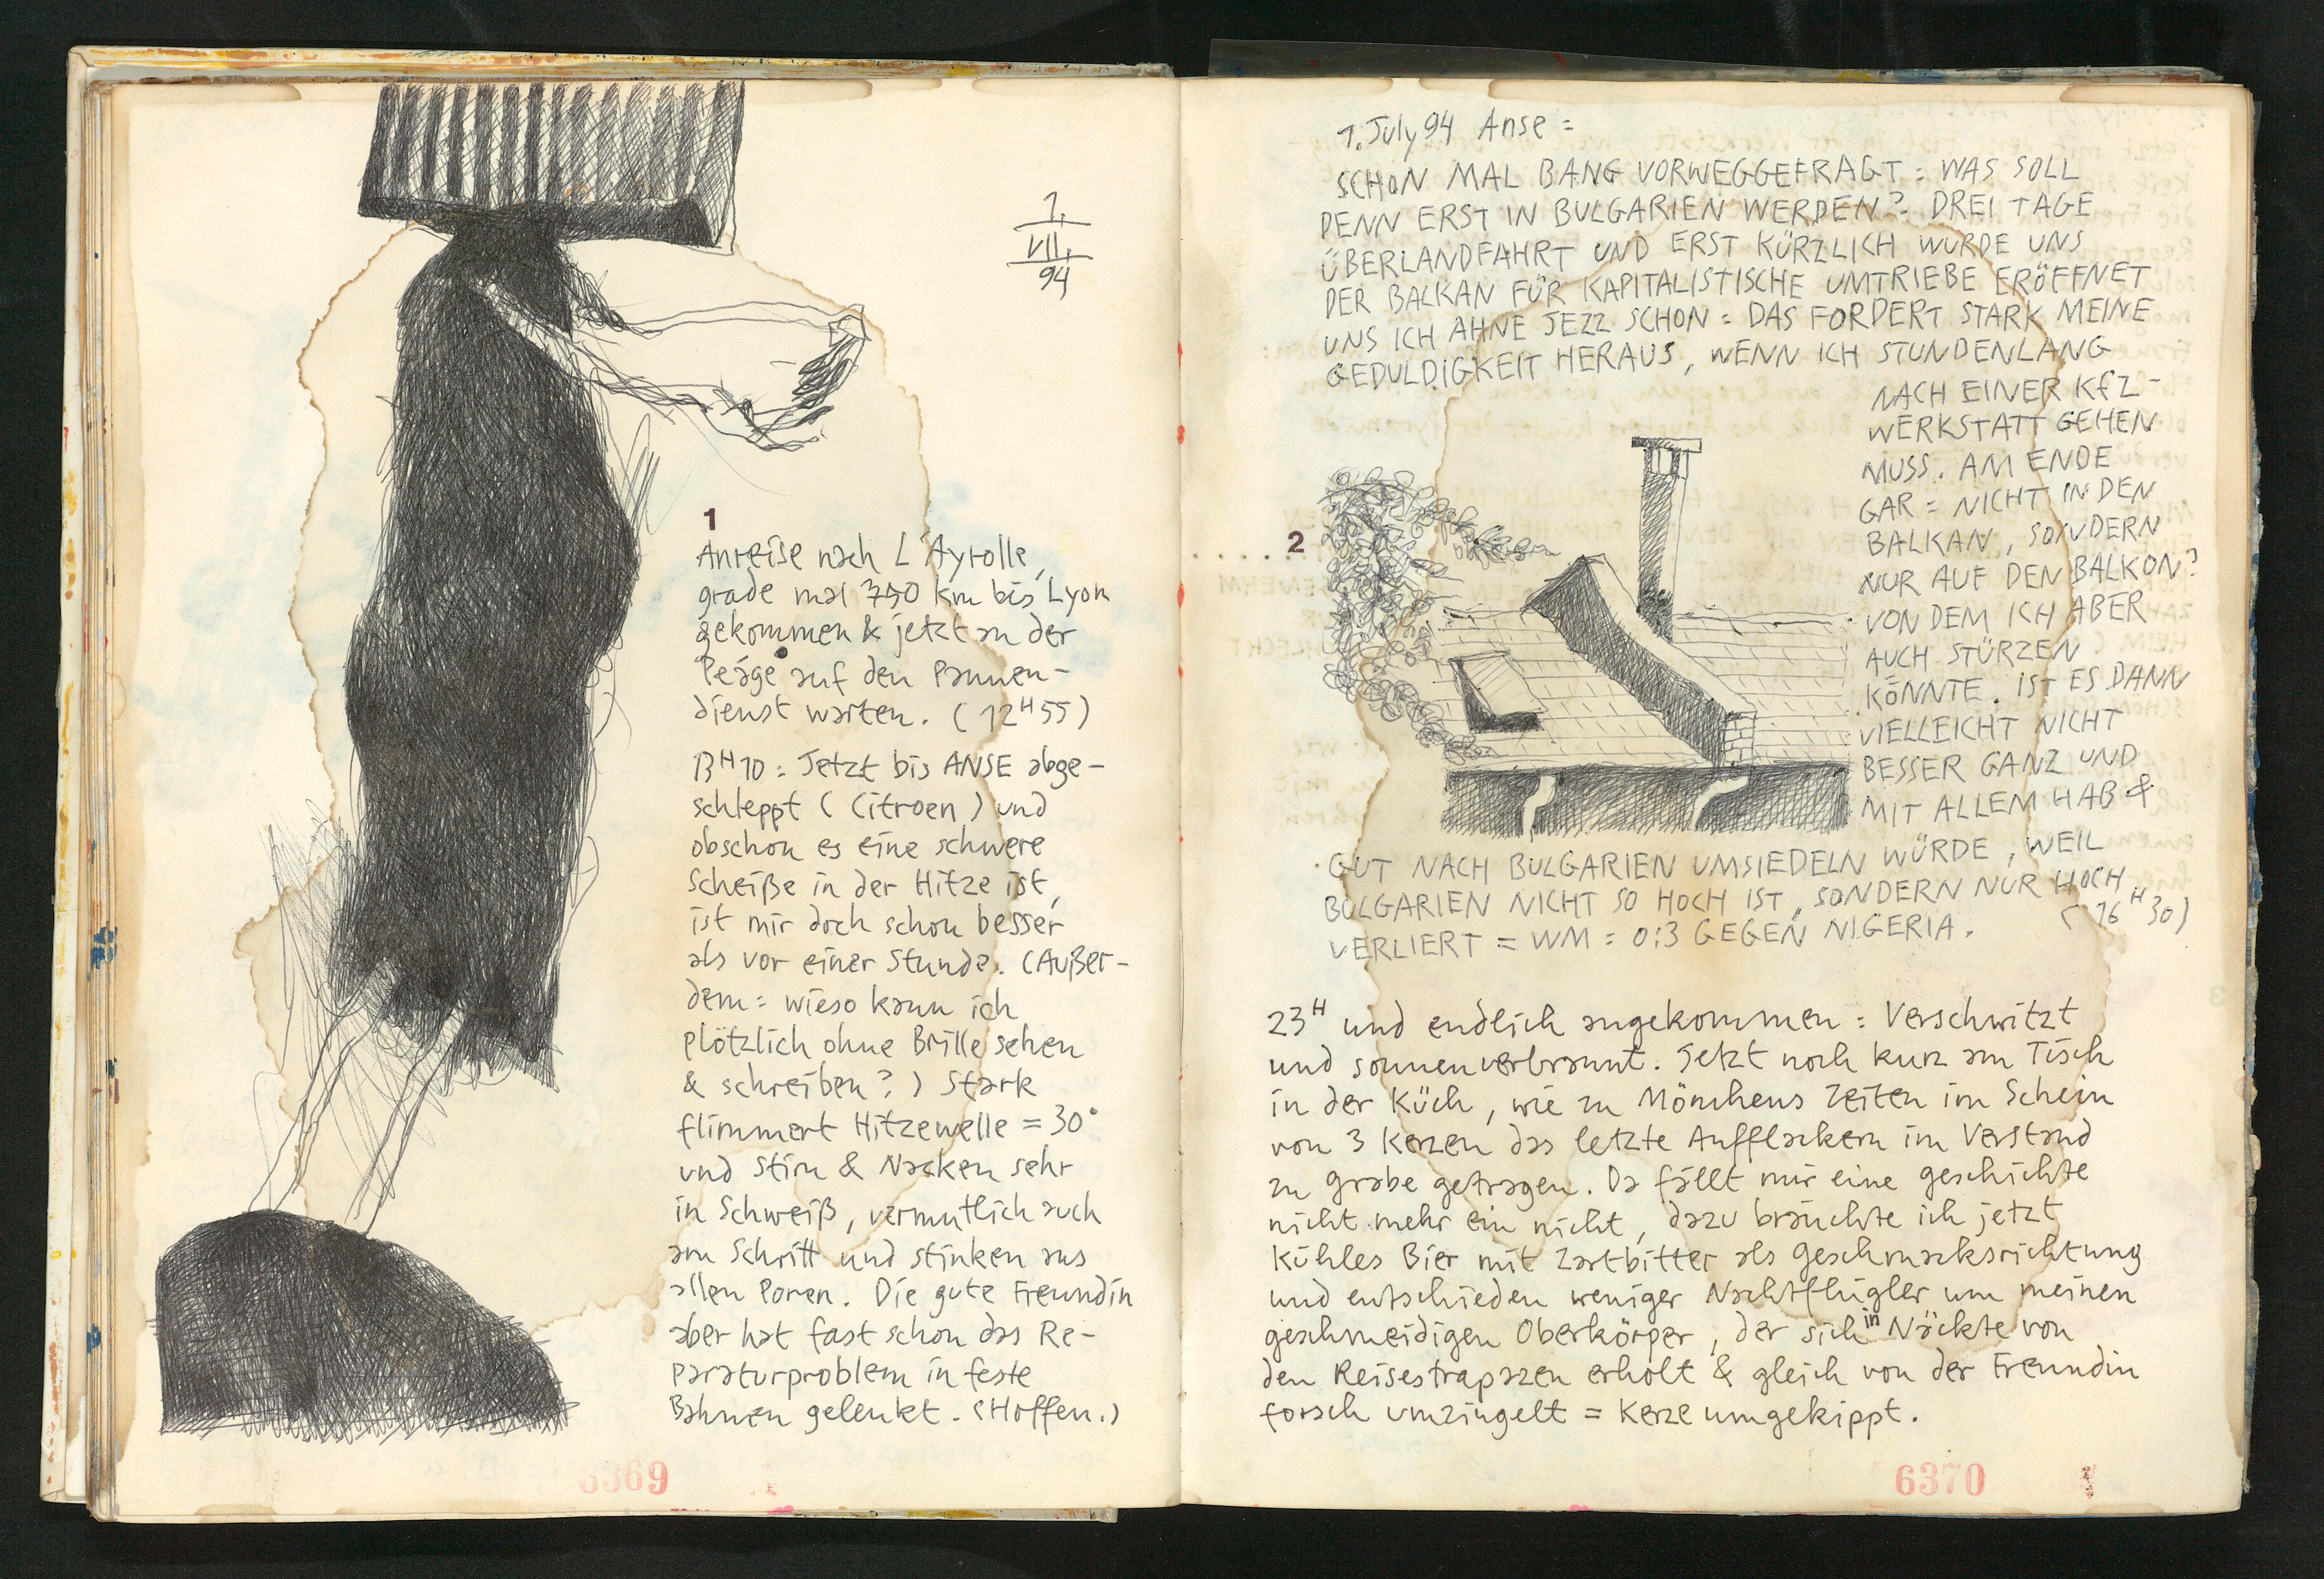 1.
VII.
94
1
Anreise nach L'Ayrolle,
grade mal 750 km bis Lyon
gekommen & jetzt an der
Peáge auf den Pannen-
dienst warten. (12H55)
13H10 = Jetzt bis ANSE abge-
schleppt (Citroen) und
obschon es eine schwere
Scheiße in der Hitze ist,
ist mir doch schon besser
als vor einer Stunde. (Außer-
dem = wieso kann ich
plötzlich ohne Brille sehen
& schreiben?) Stark
flimmert Hitzewelle = 30°
und Stirn & Nacken sehr
in Schweiß, vermutlich auch
am Schritt und stinken aus
allen Poren. Die gute Freundin
aber hat fast schon das Re-
paraturproblem in feste
Bahnen gelenkt. (Hoffen.)
6369
1. July 94 Anse =
SCHON MAL BANG VORWEGGEFRAGT = WAS SOLL
DENN ERST IN BULGARIEN WERDEN? DREI TAGE
ÜBERLANDFAHRT UND ERST KÜRZLICH WURDE UNS
DER BALKAN FÜR KAPITALISTISCHE UMTRIEBE ERÖFFNET
UNS ICH AHNE JEZZ SCHON = DAS FORDERT STARK MEINE
GEDULDIGKEIT HERAUS, WENN ICH STUNDENLANG
NACH EINER KfZ-
WERKSTATT GEHEN
MUSS. AM ENDE
GAR = NICHT IN DEN
BALKAN, SONDERN
NUR AUF DEN BALKON?
VON DEM ICH ABER
AUCH STÜRZEN
KÖNNTE. IST ES DANN
VIELLEICHT NICHT
BESSER GANZ UND
MIT ALLEM HAB &
GUT NACH BULGARIEN UMSIEDELN WÜRDE, WEIL
BULGARIEN NICHT SO HOCH IST, SONDERN NUR HOCH
VERLIERT = WM = 0:3 GEGEN NIGERIA. (16H30)
2
23H und endlich angekommen = Verschwitzt
und sonnenverbrannt. Jetzt noch kurz am Tisch
in der Küch, wie zu Mönchens Zeiten im Schein
von 3 Kerzen das letzte Aufflackern im Verstand
zu Grabe getragen. Da fällt mir eine Geschichte
nicht mehr ein nicht, dazu bräuchte ich jetzt
kühles Bier mit Zartbitter als Geschmacksrichtung
und entschieden weniger Nachtflügler um meinen
geschmeidigen Oberkörper, der sich in Näckte von
den Reisestrapazen erholt & gleich von der Freundin
forsch umzingelt = Kerze umgekippt.
6370